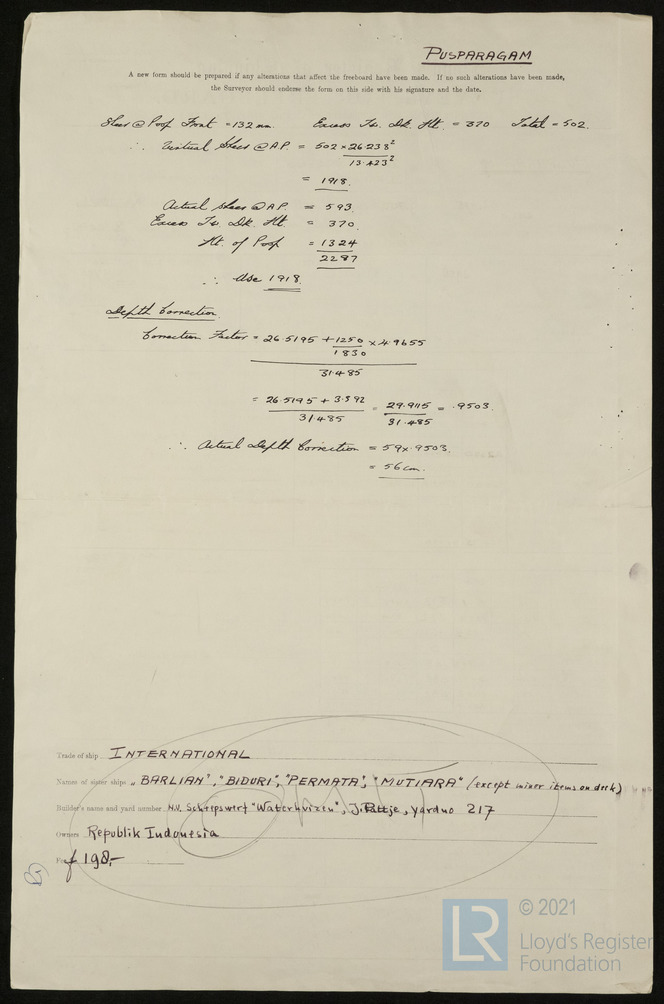 PUSPARAGAM
A new form should be prepared if any alterations that affect the freeboard have been made. If no such alterations have been made,
the Surveyor should endorse the form on this side with his signature and the date.
Sheer @ Poop Front = 132 mm. Excess Tw. Dk. Ht. = 370 Total = 502.
∴ Virtual Sheer @ A.P. = 502 × 26.238²
13.423²
= 1918.
Actual Sheer @ A.P. = 593.
Excess Tw. Dk. Ht. = 370.
Ht. of Poop = 1324
2287
∴ Use 1918.
Depth Correction.
Correction Factor = 26.5195 + 1250 × 4.9655
1830
31.485
= 26.5195 + 3.392 = 29.9115 = .9503.
31.485 31.485
∴ Actual Depth Correction = 59 × .9503.
= 56 cm.
Trade of ship INTERNATIONAL
Names of sister ships „BARLIAN", "BIDURI", "PERMATA", "MUTIARA" (except minor items on deck)
Builder's name and yard number N.V. Scheepswerf "Waterhuizen", J. Pattje, yardno 217
Owners Republik Indonesia
f 198,-
LR
© 2021
Lloyd's Register
Foundation